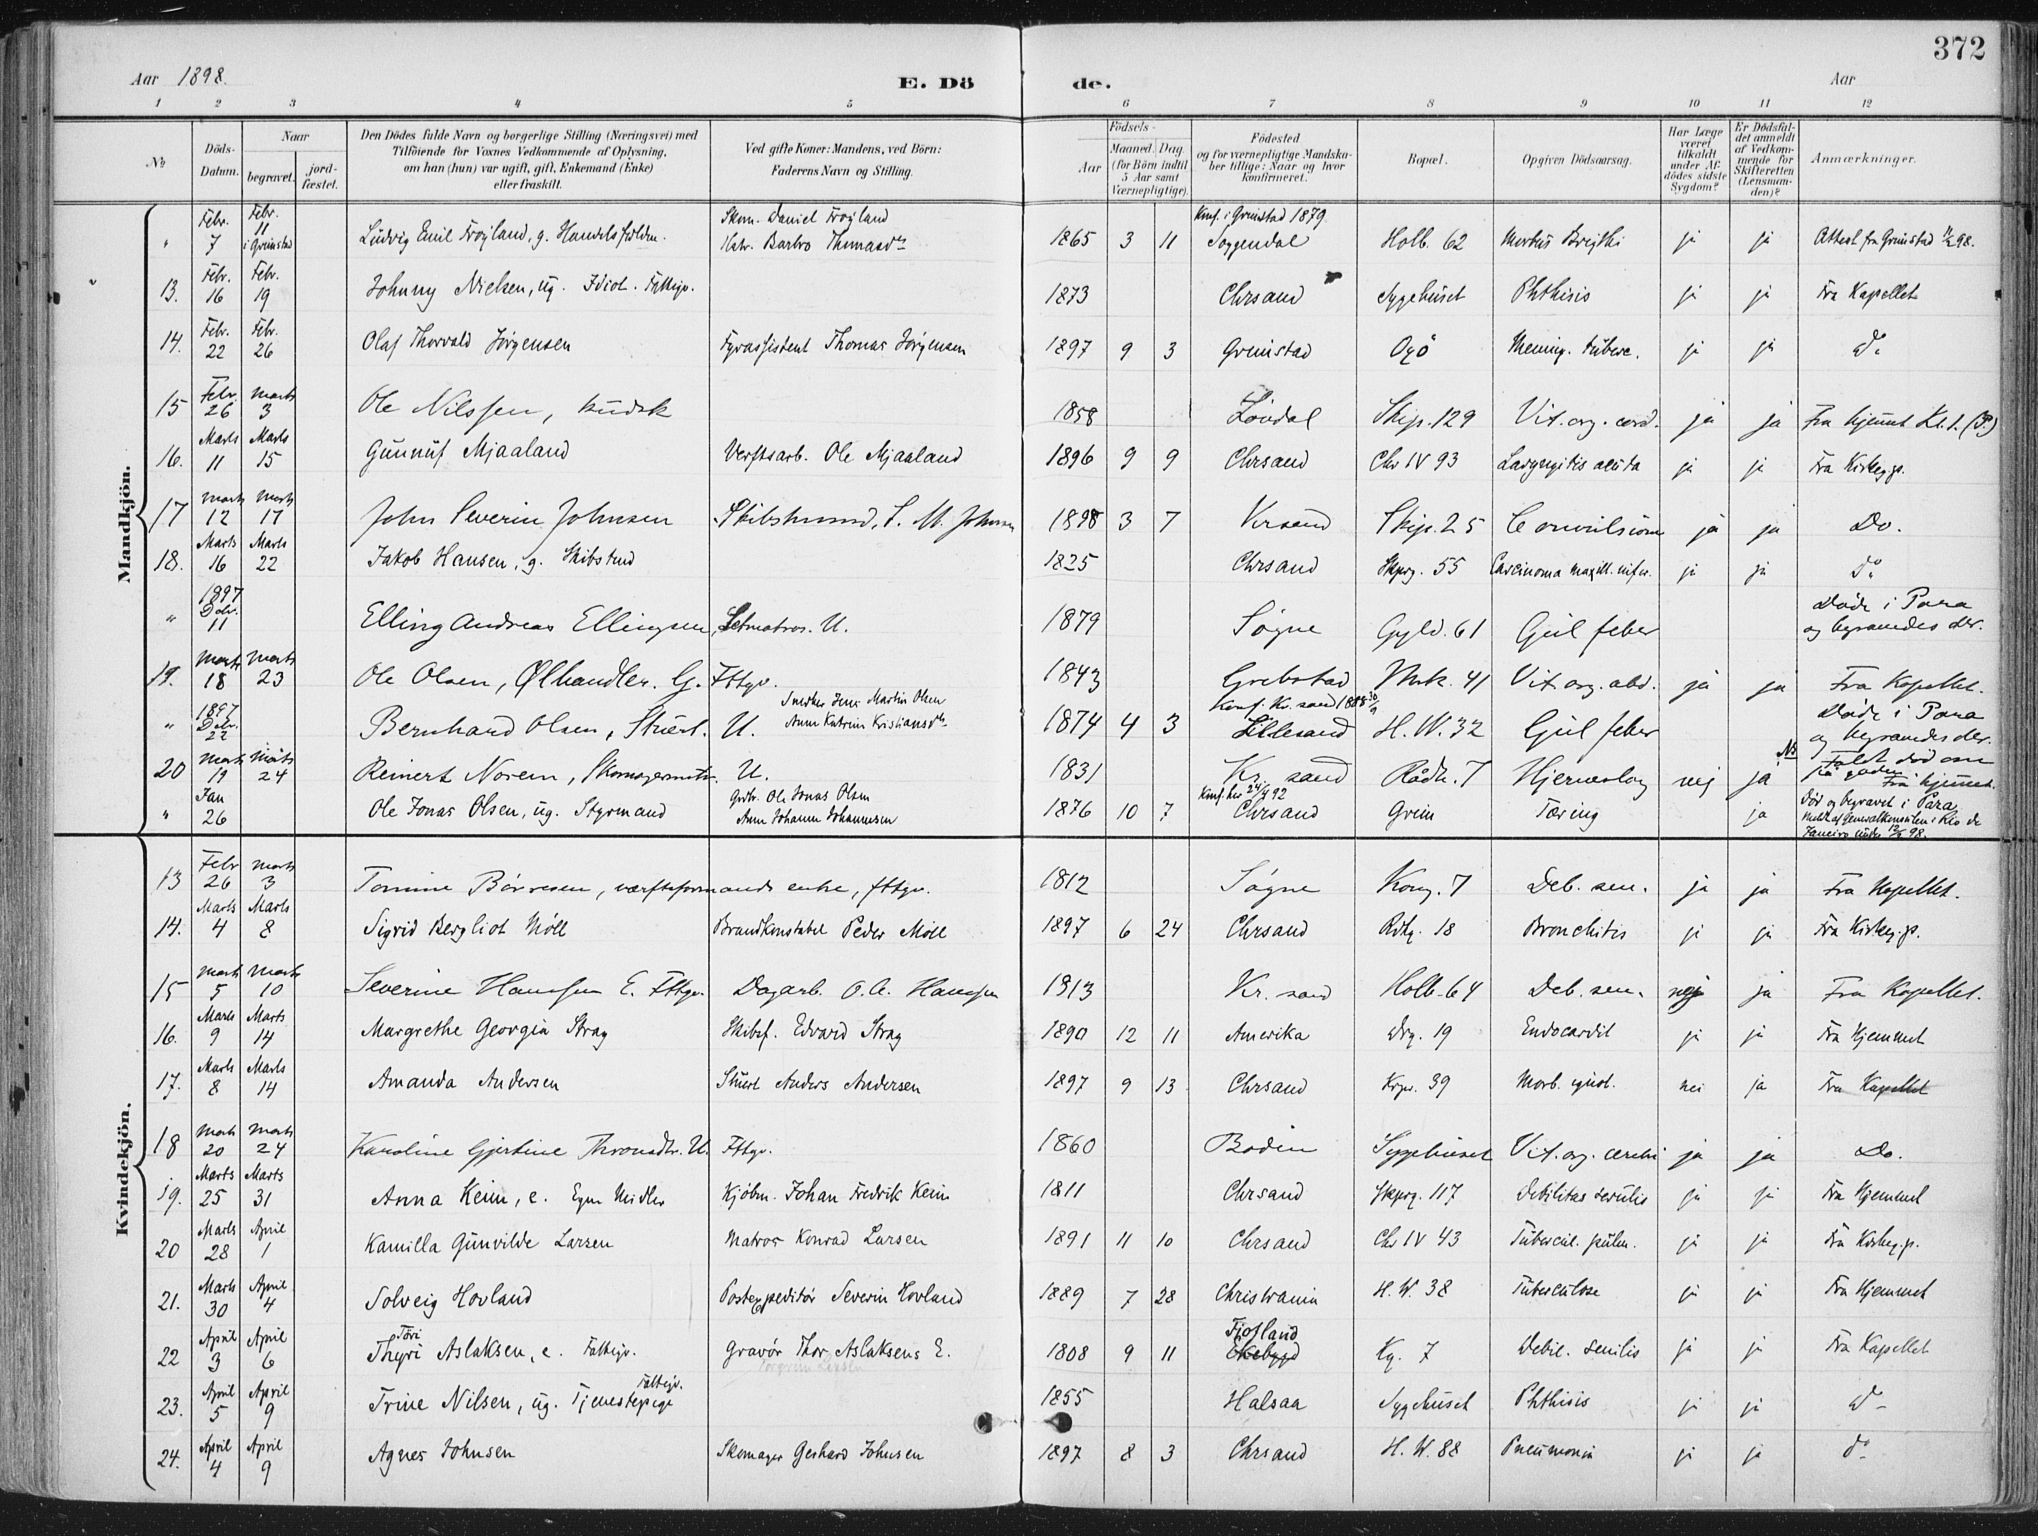 372
Aar 1898.
E. Dö de.
Aar
1 2 3 4 5 6 7 8 9 10 11 12
No
Döds-Datum.
Naar
begravet.
jord-fæstet.
Den Dödes fulde Navn og borgerlige Stilling (Næringsvei) med
Tilföiende for Voxnes Vedkommende af Oplysning,
om han (hun) var ugift, gift, Enkemand (Enke)
eller fraskilt.
Ved gifte Koner: Mandens, ved Börn:
Faderens Navn og Stilling.
Födsels-
Aar
Maaned. Dag.
(for Börn indtil
5 Aar samt
Værnepligtige).
Födested
og for værnepligtige Mandska-
ber tillige: Naar og hvor
konfirmeret.
Bopæl.
Opgiven Dödsaarsag.
Har Læge
været
tilkaldt
under Af-
dödes sidste
Sygdom?
Er Dödsfal-
det anmeldt
af Vedkom-
mende for
Skifteretten
(Lensman-
den)?
Anmærkninger.
Mandkjön.
" Febr. 7 Febr. 11 i Grimstad Ludvig Emil Frøjland, g. Skom. Daniel Frøjland Barbro 1865 3 11 Konf. i Grimstad 1879 Soggendal Holb. 62 Morbus Brigthi ja ja Attest fra Grimstad 98.
13. Febr. 16 Febr. 19 Johnny Nielsen, ug. Idiot. Fattigv. 1873 Chrsand Sygehuset Phthisis ja ja Fra Kapellet
14. Febr. 22 Febr. 26 Olaf Thorvald Jørgensen Fyrassistent Thomas Jørgensen 1897 9 3 Grimstad Ogö Mening. tuberc. ja ja do
15 Febr. 26 Marts 3 Ole Nilssen, kudsk 1858 Skip. 129 Vit. org. cord. ja ja Fra hjemmet
16. Marts 11 Marts 15 Gunnuf Mjaaland Verftsarb. Ole Mjaaland 1896 9 9 Chrsand Chr IV 93 Laryngitis acuta ja ja Fra Kirkeg.
17 Marts 12 Marts 17 John Severin Johnsen Skibstmmd, S. M. Johnsen 1898 3 7 Krsand Skip. 25 Convulsiones ja ja Do.
18. Marts 16 Marts 22 Jakob Hansen, g. Skibstmd 1825 Chrsand Skprg. 55 Carcinoma maxill. infer. ja ja do
" 1897 Dcbr. 11 Elling Andreas Ellingsen, Letmatros. U. 1879 Søgne Gyld. 61 Gul feber Døde i Para og begravedes der.
19. Marts 18 Marts 23 Ole Olsen, Ølhandler. G. Fttgv. 1843 Grebstad Mrk. 41 Vit. org. abd. ja ja Fra Kapellet.
" 1897 Dcbr. 22 Bernhard Olsen, Stuert. U. Snedker Jens Martin Olsen Anne Katrine Kristiansdtr 1874 4 3 Konf. Kr.sand Lillesand H. W. 32 Gul feber Døde i Para og begravedes der.
20 Marts 19 Marts 24 Reinert Norem, Skomagermstr. U. 1831 Kr.sand Rådh. 7 Hjerneslag nej ja Faldt død om på gaden Fra hjemmet.
" Jan 26 Ole Jonas Olsen, ug. Styrmand Ole Jonas Olsen Anne Johanne Johannesen 1876 10 7 Chrsand Grim Tæring ja Død og begravet i Para Meldt af Generalkonsulen i Rio de Janeiro under 98.
Kvindekjön.
13 Febr 26 Marts 3 Tomine Børresen, værftsformands enke, fttgv. 1812 Søgne Kong. 7 Deb. sen. ja ja Fra Kapellet.
14. Marts 4 Marts 8 Sigrid Bergliot Möll Brandkonstabel Peder Möll 1897 6 24 Chrsand Rdhg. 18 Bronchitis ja ja Fra Kirkeg.
15 Marts 5 Marts 10 Severine Hanssen E. Fttgv. Dagarb. O. A. Hanssen 1813 Kr.sand Holb. 64 Deb. sen. nej ja Fra Kapellet.
16. Marts 9 Marts 14 Margrethe Georgia Stray Skibsf. Edvard Stray 1890 12 11 Amerika Drg. 19 Endocardit ja ja Fra Hjemmet
17. Marts 8 Marts 14 Amanda Andersen Stuert Anders Andersen 1897 9 13 Chrsand Krpr. 39 Morb. ignot. nei ja Fra Kapellet
18 Marts 20 Marts 24 Karoline Gjertine Thronsdtr. U. Fttgv. 1860 Bodin Sygehuset Vit. org. cerebri ja ja Do.
19. Marts 25 Marts 31 Anna Keim, e. Egne Midler Kjøbm. Johan Fredrik Keim 1811 Chrsand Skprg. 117 Debilitas senilis ja ja Fra Hjemmet
20 Marts 28 April 1 Kamilla Gunvilde Larsen Matros Konrad Larsen 1891 11 10 Chrsand Chr IV 43 Tubercul. pulm. ja ja Fra Kirkeg.
21. Marts 30 April 4 Solveig Hovland Postexpeditør Severin Hovland 1889 7 28 Christiania H. W. 38 Tuberculose ja ja Fra Hjemmet
22 April 3 April 6 Töri Thyri Aslaksen, e. Fattigv. Gravør Thor Aslaksens E. 1808 9 11 Fjotland Ekebygd Kg. 7 Debil. senilis ja ja Fra Kapellet
23. April 5 April 9 Trine Nilsen, ug. Tjenestepige Fattigv. 1855 Halsaa Sygehuset Phthisis ja ja do
24. April 4 April 9 Agnes Johnsen Skomager Gerhard Johnsen 1897 8 3 Chrsand H. W. 88 Pneumonia ja ja do